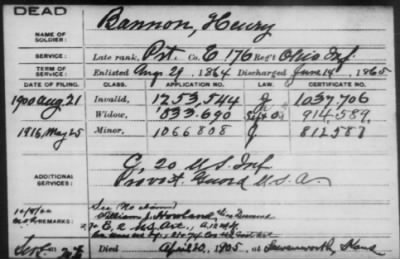 DEAD
NAME OF SOLDIER: Bannon, Henry
SERVICE: Late rank, Pvt. Co. E 176 Reg't Ohio Inf.
TERM OF SERVICE: Enlisted Aug. 29, 1864 Discharged June 14, 1865
DATE OF FILING. CLASS. APPLICATION NO. LAW. CERTIFICATE NO.
1900 Aug 21 Invalid, 1253,544 J 1037.706
Widow, 833.690 914.589
1916, May 25 Minor, 1066808 J 812587
ADDITIONAL SERVICES: G, 20 U.S. Inf
Provost Guard U.S.A.
REMARKS: See (No claim)
William J. Howland,
Died April 20, 1905, at Leavenworth, Kans